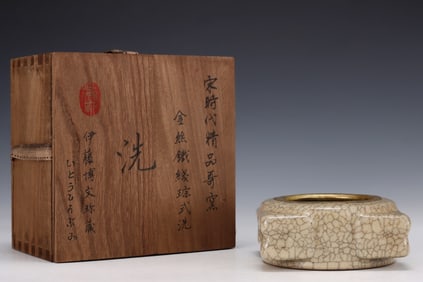 宋時代精品哥窯
金絲鐵綫琮式洗
洗
伊藤博文珍藏
いとうひろぶみ